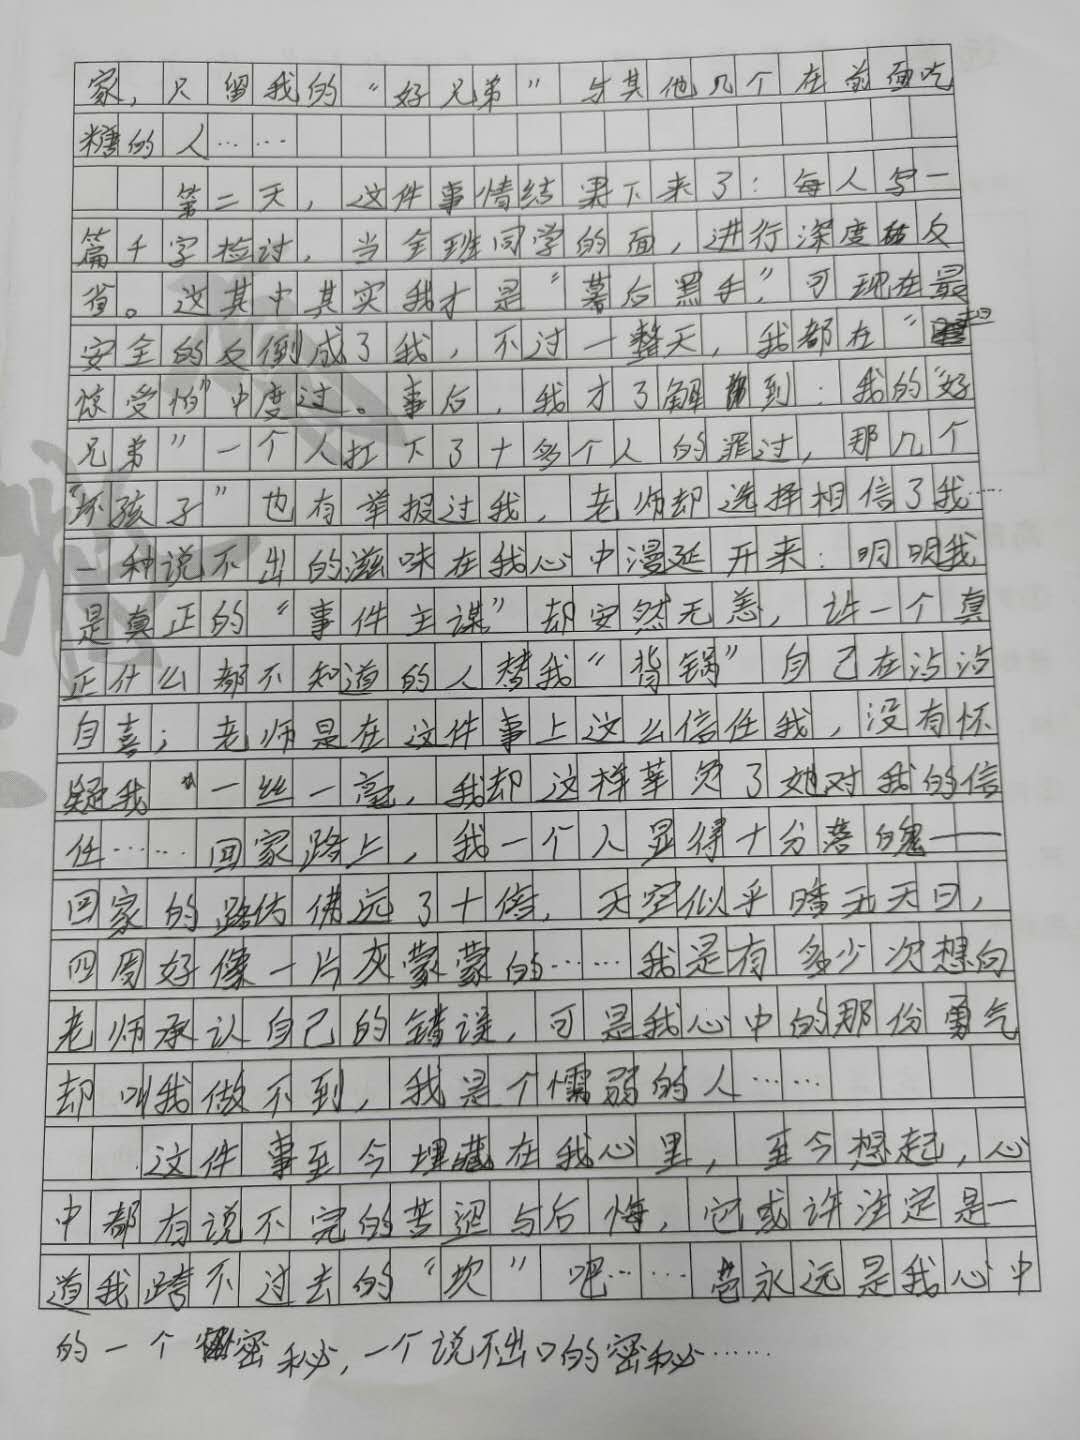 家，只留我的“好兄弟”与其他几个在前面吃
糖的人……
第二天，这件事情结果下来了：每人写一
篇千字检讨，当全班同学的面，进行深度反
省。这其中其实我才是“幕后黑手”，可现在最
安全的反倒成了我，不过一整天，我都在“
惊受怕”中度过。事后，我才了解到：我的“好
兄弟”一个人扛下了十多个人的罪过，那几个
“坏孩子”也有举报过我，老师却选择相信了我……
一种说不出的滋味在我心中漫延开来：明明我
是真正的“事件主谋”却安然无恙，让一个真
正什么都不知道的人替我“背锅”自己在沾沾
自喜；老师是在这件事上这么信任我，没有怀
疑我一丝一毫，我却这样辜负了她对我的信
任……回家路上，我一个人显得十分落魄——
回家的路仿佛远了十倍，天空似乎暗无天日，
四周好像一片灰蒙蒙的……我是有多少次想向
老师承认自己的错误，可是我心中的那份勇气
却叫我做不到，我是个懦弱的人……
这件事至今埋藏在我心里，至今想起，心
中都有说不完的苦涩与后悔，它或许注定是一
道我跨不过去的“坎”吧……它永远是我心中
的一个密秘，一个说不出口的密秘……